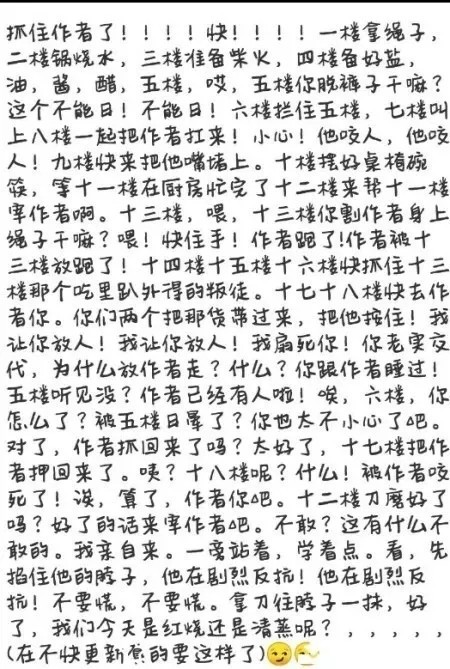 抓住作者了！！！！快！！！！一楼拿绳子，
二楼锅烧水，三楼准备柴火，四楼备好盐，
油，酱，醋，五楼，哎，五楼你脱裤子干嘛？
这个不能日！不能日！六楼拦住五楼，七楼叫
上八楼一起把作者扛来！小心！他咬人，他咬
人！九楼快来把他嘴堵上。十楼摆好桌椅碗
筷，等十一楼在厨房忙完了十二楼来帮十一楼
宰作者啊。十三楼，喂，十三楼你割作者身上
绳子干嘛？喂！快住手！作者跑了!作者被十
三楼放跑了！十四楼十五楼十六楼快抓住十三
楼那个吃里趴外得的叛徒。十七十八楼快去作
者你。你们两个把那货带过来，把他按住！我
让你放人！我让你放人！我扇死你！你老实交
代，为什么放作者走？什么？你跟作者睡过！
五楼听见没？作者已经有人啦！唉，六楼，你
怎么了？被五楼日晕了？你也太不小心了吧。
对了，作者抓回来了吗？太好了，十七楼把作
者押回来了。咦？十八楼呢？什么！被作者咬
死了！诶，算了，作者你吧。十二楼刀磨好了
吗？好了的话来宰作者吧。不敢？这有什么不
敢的。我亲自来。一旁站着，学着点。看，先
掐住他的脖子，他在剧烈反抗！他在剧烈反
抗！不要慌，不要慌。拿刀往脖子一抹，好
了，我们今天是红烧还是清蒸呢？，，，，，
(在不快更新惹的要这样了)😏